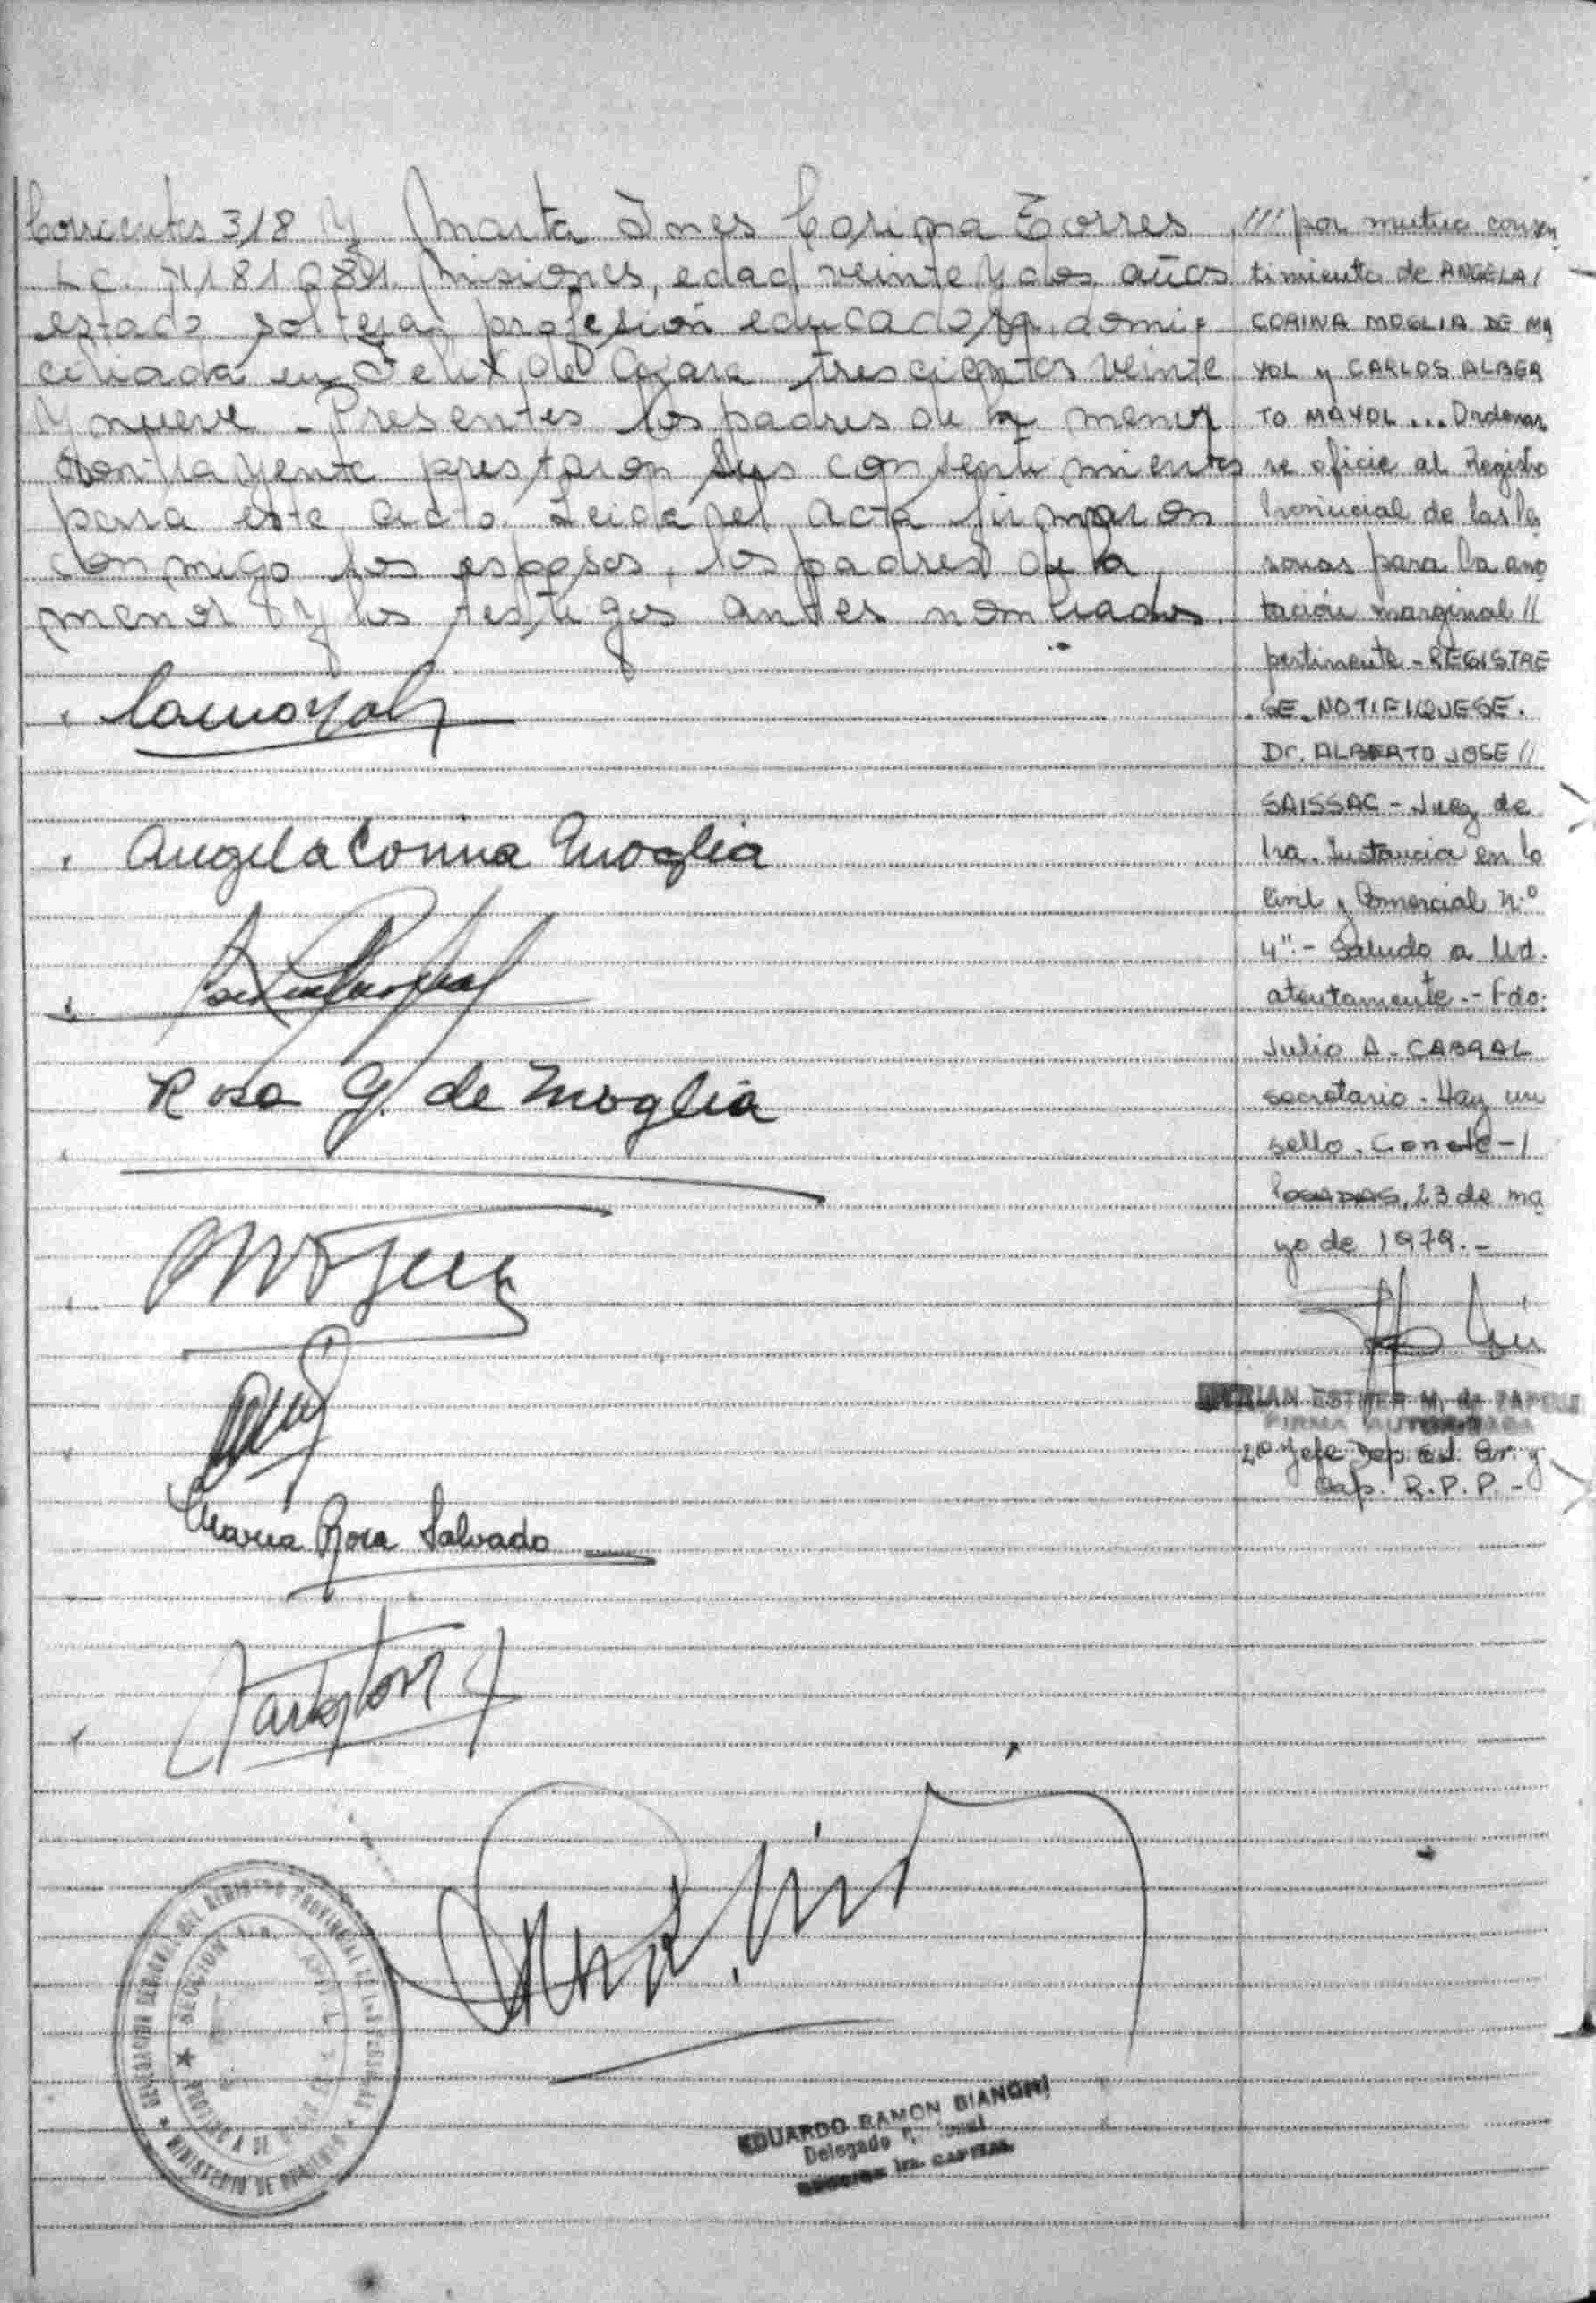 Corrientes 318 y Marta Ines Corina Torres
L.C. misiones, edad veinte y dos años
estado soltera, profesión educadora, domi-
ciliada en Felix de Azara trescientos veinte
y nueve - Presentes los padres de la menor
contrayente prestaron sus consentimientos
para este acto. Leida el acta firmaron
conmigo los esposos, los padres de la
menor y los testigos antes nombrados.
Camayol
Angela Corina Moglia
Rosa G. de Moglia
Maria Rosa Salvado
/// por mutuo consen
timiento de ANGELA/
CORINA MOGLIA DE MA
YOL y CARLOS ALBER
TO MAYOL ... Ordenar
se oficie al Registro
Provincial de las Pe
sonas para la ano
tación marginal //
pertinente - REGISTRE
SE. NOTIFIQUESE.
Dr. ALBERTO JOSE //
SAISSAC - Juez de
1ra. Instancia en lo
Civil y Comercial N.º
4".- Saludo a Ud.
atentamente.- Fdo:
Julio A. CABRAL
secretario. Hay un
sello. Conste -/
POSADAS, 23 de ma
yo de 1979.-
ESTHER M. de
FIRMA AUTORIZADA
2º Jefe Dep.
Cap. R.P.P. -
DEL REGISTRO PROVINCIAL DE LAS PERSONAS
SECCION 1a. CAPITAL
MINISTERIO DE GOBIERNO
EDUARDO RAMON BIANCHI
Delegado
SECCION 1ra. CAPITAL